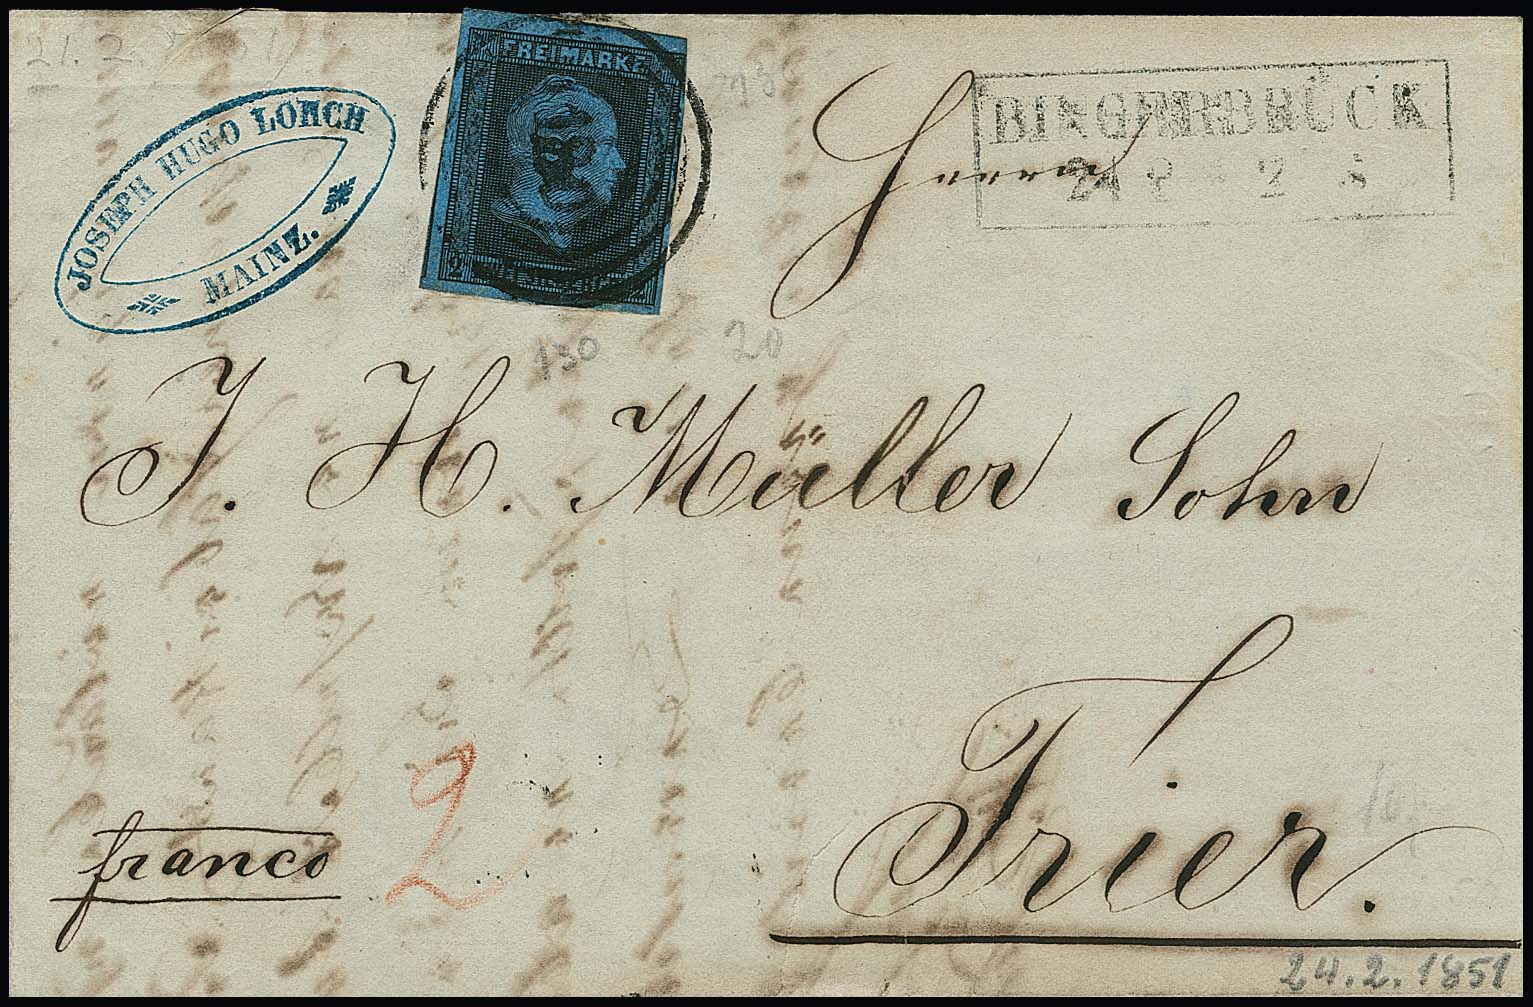 21. 2.
JOSEPH HUGO LORCH
MAINZ.
FREIMARKE
2
BINGERBRÜCK
24 2
Herrn
130
20
J. H. Müller Sohn
franco
2
Trier.
24.2.1851